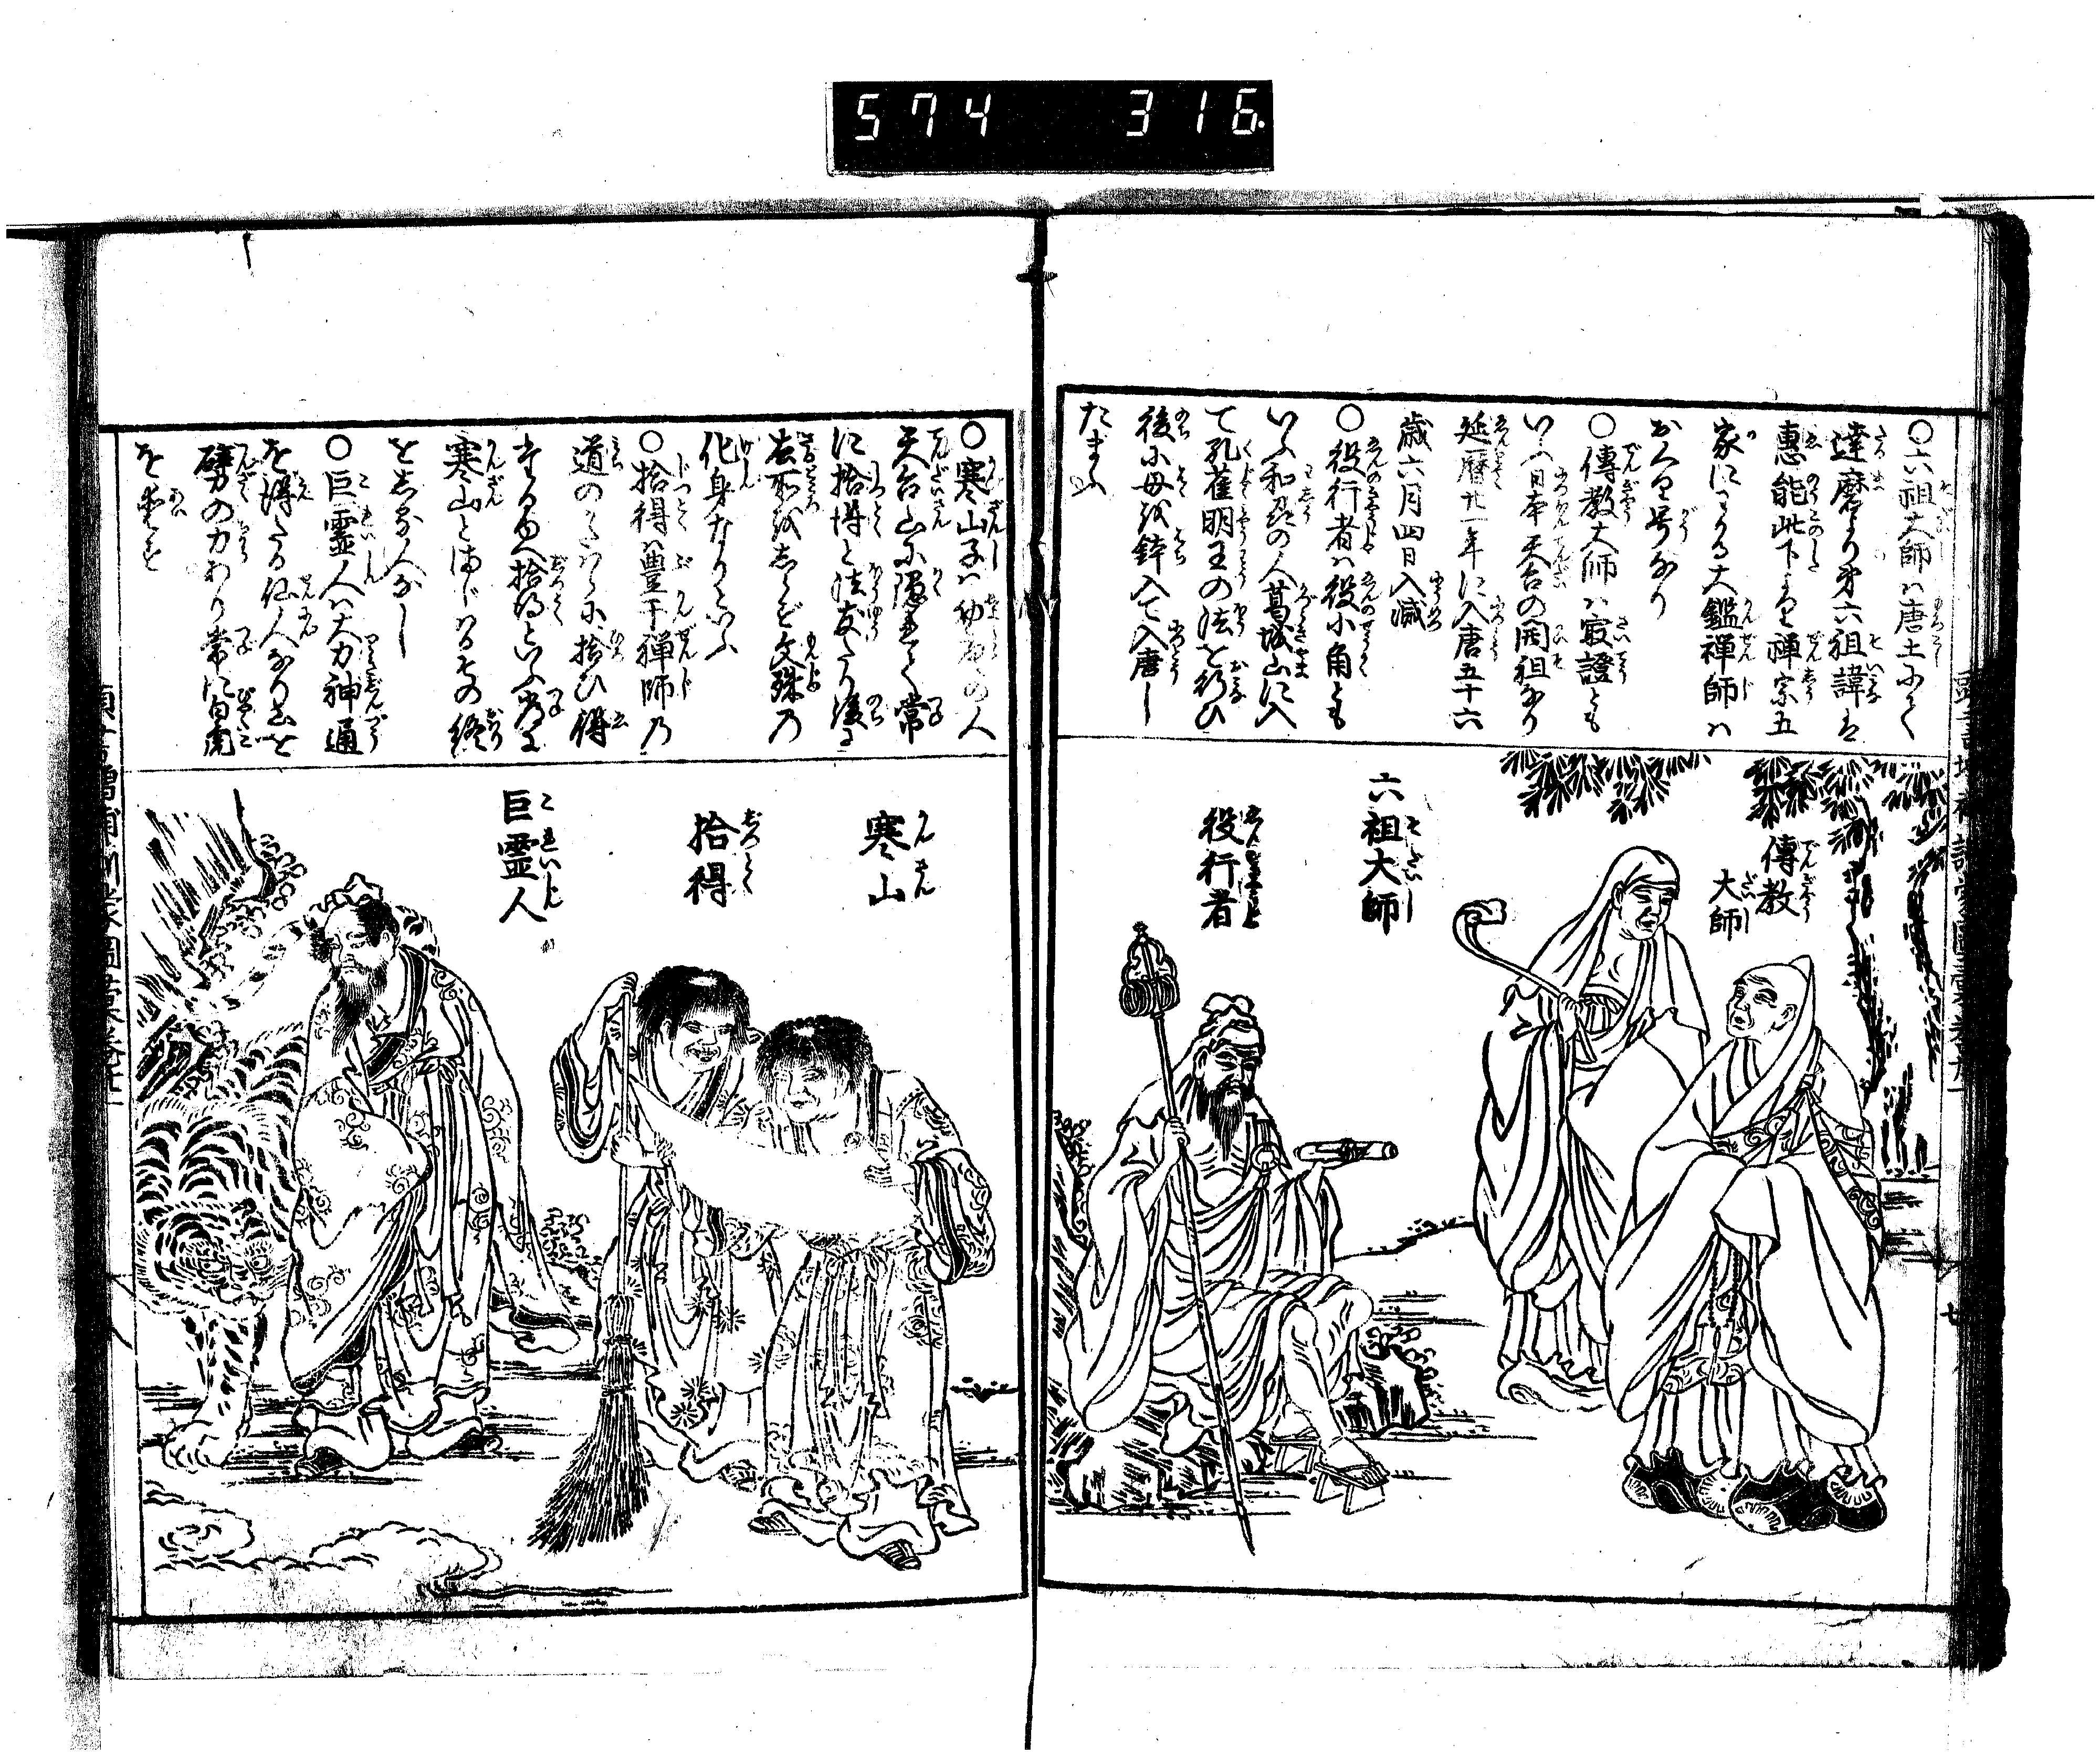 574 316
〇六祖大師ハ唐土にて
達磨より第六祖諱は
惠能此下より禪宗五
家にわかる大鑑禅師ハ
おくり号なり
〇傳教大師ハ最證とも
いふ日本天台の開祖なり
延暦廿一年に入唐五十六
歳六月四日入滅
〇役行者ハ役小角とも
いふ和州の人葛城山に入
て孔雀明王の法を行ひ
後に母を鉢入て入唐し
たまふ
傳教
大師
六祖大師
役行者
〇寒山子ハ
の人
天台山に隠れて常
に拾得と法友たり後に
去所をしらず文殊の
化身なりといふ
〇拾得ハ豊干禅師の
道のかたハらに拾ひ得
たるゆへ拾得といふ常に
寒山とまじハるその終
をしる人なし
〇巨霊人ハ大力神通
を得たる仙人なり山を
劈の力わり常に白虎
を愛す
寒山
拾得
巨霊人